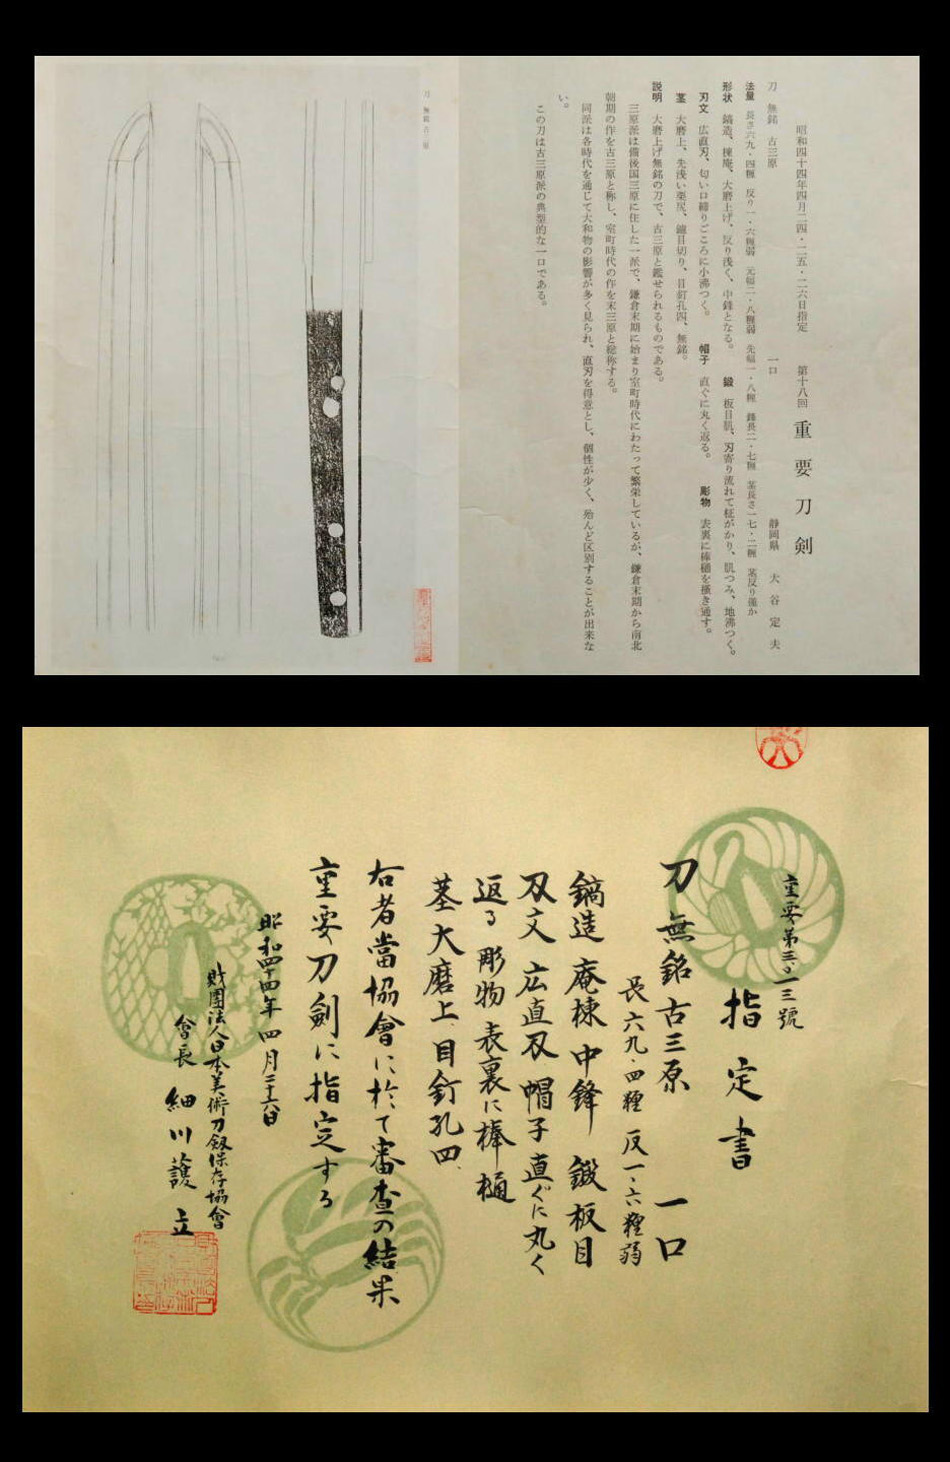 昭和四十四年四月二四・二五・二六日指定 第十八回 重要刀剣
刀 無銘 古三原 一口 静岡県 大谷定夫
法量 長さ六九・四糎 反り一・六糎弱 元幅二・八糎弱 先幅一・八糎 鋒長二・七糎 茎長さ一七・二糎 茎反り僅か
形状 鎬造、棟庵、大磨上げ、反り浅く、中鋒となる。 鍛 板目肌、刃寄り流れて柾がかり、肌つみ、地沸つく。
刃文 広直刃、匂い口締りごころに小沸つく。 帽子 直ぐに丸く返る。 彫物 表裏に棒樋を掻き通す。
茎 大磨上、先浅い栗尻、鑢目切り、目釘孔四、無銘。
説明 大磨上げ無銘の刀で、古三原と鑑せられるものである。
三原派は備後国三原に住した一派で、鎌倉末期に始まり室町時代にわたって繁栄しているが、鎌倉末期から南北
朝期の作を古三原と称し、室町時代の作を末三原と総称する。
同派は各時代を通じて大和物の影響が多く見られ、直刃を得意とし、個性が少く、殆んど区別することが出来な
い。
この刀は古三原派の典型的な一口である。
刀 無銘 古三原
重要第三〇一三號
指定書
刀 無銘古三原 一口
長六九・四糎 反一・六糎弱
鎬造 庵棟 中鋒 鍛板目
刃文 広直刃 帽子直ぐに丸く
返る 彫物表裏に棒樋
茎大磨上、目釘孔四、
右者當協會に於て審査の結果
重要刀剣に指定する
昭和四十四年四月二十六日
財團法人日本美術刀剱保存協會
會長 細川護立